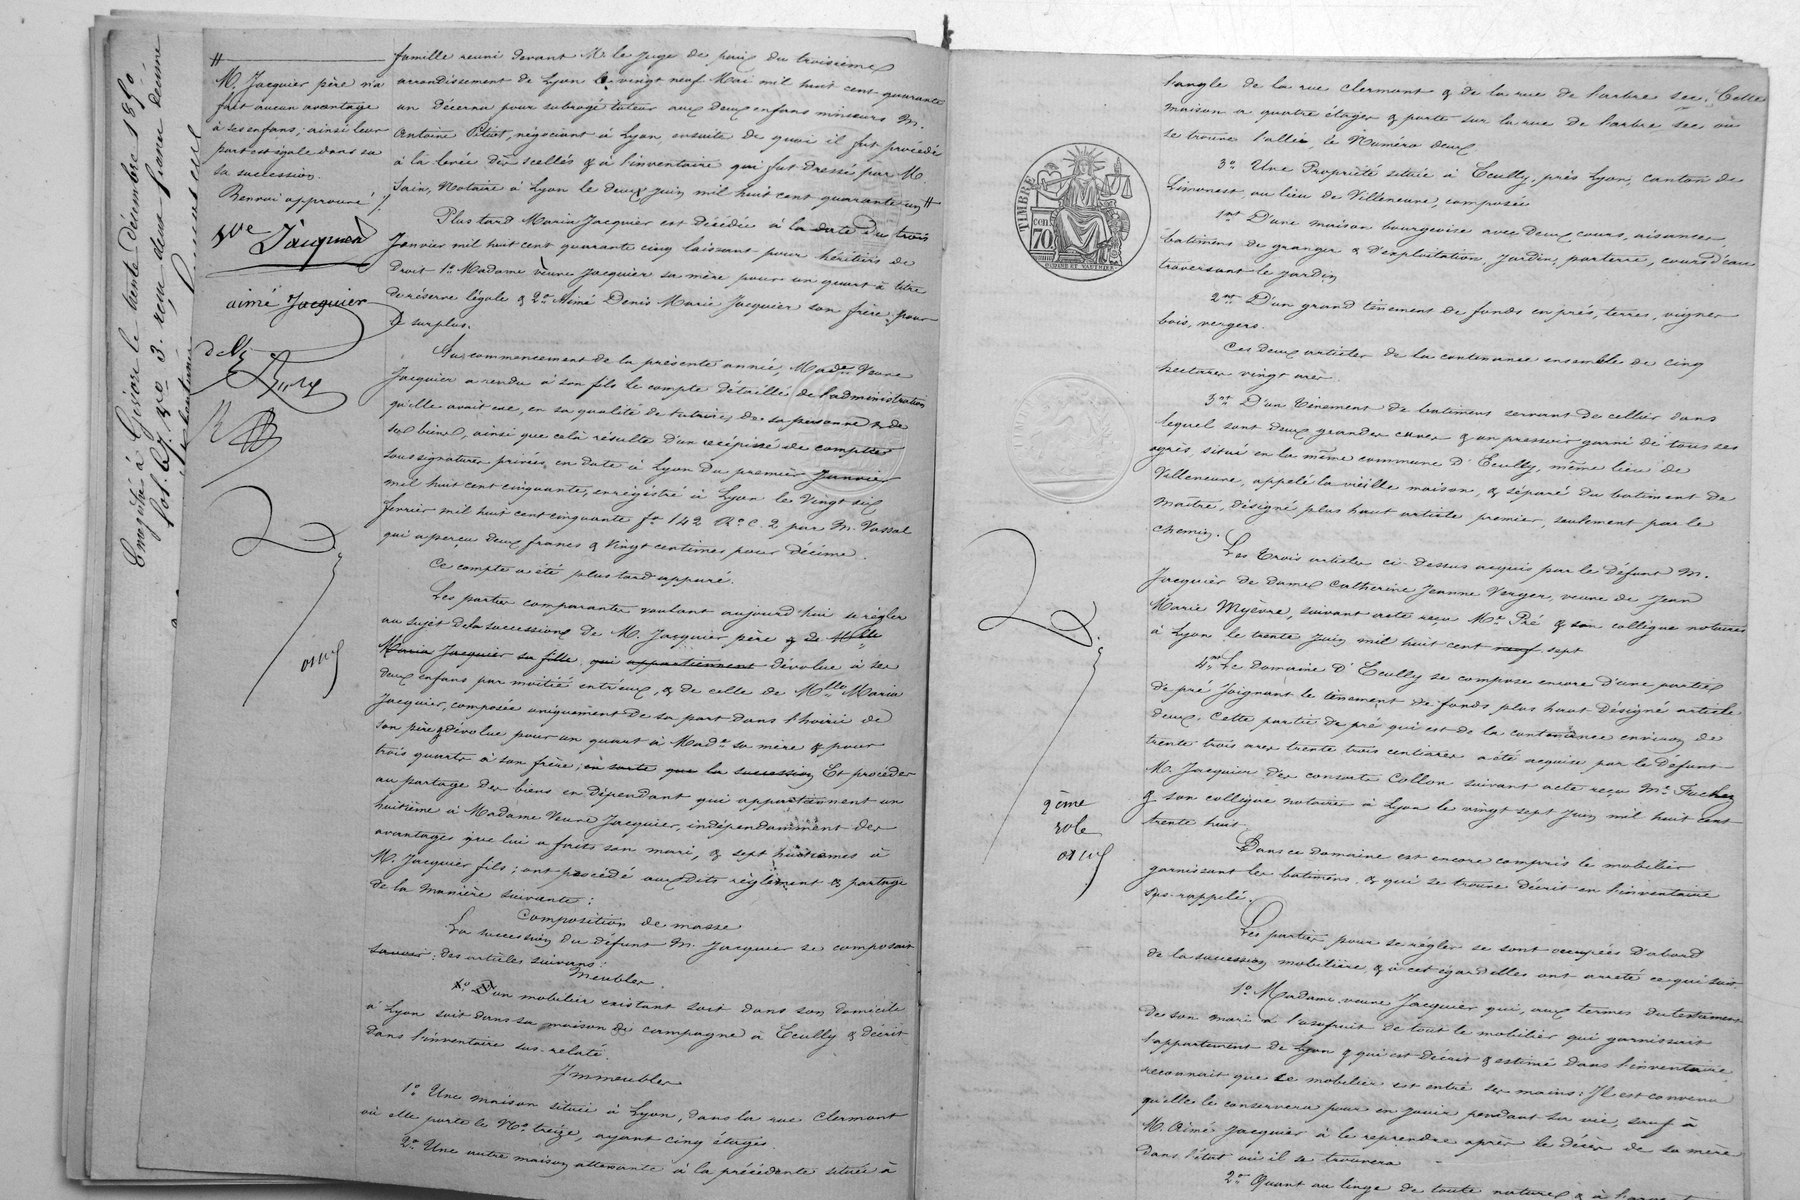 Enregistré à Givors le trente décembre 1850
fol. 67. Vo 3. reçu deux francs decime
#
M. Jacquier père n'a
fait aucun avantage
à ses enfans; ainsi leur
part est égale dans sa
sa succession.
Renvoi approuvé ./.
Vve Jacquier
aimé Jacquier
famille reuni devant Mr le Juge de paix du troisième
arrondissement de Lyon le vingt neuf Mai mil huit cent quarante
un décerna pour subrogé tuteur aux deux enfans mineurs M.
Antoine négociant à Lyon ensuite de quoi il fut procédé
à la levée des scellés & à l'inventaire qui fut dressé par Me
Notaire à Lyon le deux Juin mil huit cent quarante un #
Plus tard Maria Jacquier est décédée à la date du trois
Janvier mil huit cent quarante cinq laissant pour héritiers de
droit 1o Madame veuve Jacquier sa mère pour un quart à titre
de réserve légale & 2o Aimé Denis Marie Jacquier son frère, pour
le surplus.
Au commencement de la présente année, Made Veuve
Jacquier a rendu à son fils le compte détaillé de l'administration
qu'elle avait eue, en sa qualité de tutrice, de sa personne & de
ses biens, ainsi que celà résulte d'un récépissé de comptes
sous signatures privées, en date à Lyon du premier Janvier
mil huit cent cinquante, enregistré à Lyon le Vingt six
fevrier mil huit cent cinquante fo 142 Ro C. 2 par M. Vassal
qui a perçu deux francs & vingt centimes pour décime.
Ce compte a été plus tard appuré.
Les parties comparantes voulant aujourd'hui se régler
au sujet de la succession de M. Jacquier père & de Melle
Maria Jacquier sa fille, qui appartiennent dévolue à ses
deux enfans par moitié entr'eux, & de celle de Melle Maria
Jacquier, composée uniquement de sa part dans l'hoirie de
son père & dévolue pour un quart à Made sa mère & pour
trois quarts à son frère; en sorte que la succession Et procéder
au partage des biens en dépendant qui appartiennent un
huitième à Madame Veuve Jacquier, indépendamment des
avantages que lui a faits son mari, & sept huitièmes à
M. Jacquier fils; ont procédé auxdits règlement & partage
de la manière suivante:
Composition de masse
La succession du défunt M. Jacquier se composait
savoir: des articles suivans:
Meubles.
1o D'un mobilier existant soit dans son domicile
à Lyon soit dans sa maison de campagne à Ecully & décrit
dans l'inventaire sus-relaté.
Immeubles
1o Une maison située à Lyon, dans la rue Clermont
où elle porte le No treize, ayant cinq étages.
2o Une autre maison attenante à la précédente située à
TIMBRE
70 cen
l'angle de la rue Clermont & de la rue de l'arbre sec. Cette
maison a quatre étages & porte sur la rue de l'arbre sec où
se trouve l'allée, le Numéro deux
3o Une Propriété située à Ecully, près Lyon, canton de
Limonest, au lieu de Villeneuve, composée
1ent D'une maison bourgeoise avec deux cours, aisances,
batimens de granger & d'exploitation, Jardin, parterre, cours d'eau
traversant le jardin
2ent D'un grand tènement de fonds en prés, terres, vignes
bois, vergers.
Ces deux articles de la contenance ensemble de cinq
hectares vingt ares
3ent D'un tènement de batimens servant de cellier dans
lequel sont deux grandes cuves & un pressoir garni de tous ses
agrès, situé en la même commune d'Ecully, même lieu de
Villeneuve, appelé la vieille maison, & séparé du batiment de
maitre, désigné plus haut article premier, seulement par le
chemin.
Les trois articles ci-dessus acquis par le défunt M.
Jacquier de dame Catherine Jeanne Verger, veuve de Jean
Marie Myèvre, suivant acte reçu Me Pré & son collègue notaires
à Lyon le trente Juin mil huit cent neuf sept
4ent Le domaine d'Ecully se compose encore d'une partie
de pré Joignant le tènement de fonds plus haut désigné article
deux. Cette partie de pré qui est de la contenance environ de
trente trois ares trente trois centiares a été acquise par le défunt
M. Jacquier des consorts Collon suivant acte reçu Me
& son collègue notaires à Lyon le vingt sept Juin mil huit cent
trente huit
2ème
role
Dans ce domaine est encore compris le mobilier
garnissant les batimens, & qui se trouve décrit en l'inventaire
sus-rappelé.
Les parties pour se régler se sont occupées d'abord
de la succession mobilière, & à cet égard elles ont arrêté ce qui suit
1o Madame veuve Jacquier qui, aux termes du testament
de son mari a l'usufruit de tout le mobilier qui garnissait
l'appartement de Lyon & qui est décrit & estimé dans l'inventaire,
reconnait que ce mobilier est entre ses mains: Il est convenu
qu'elle le conservera pour en jouir pendant sa vie, sauf à
M. Aimé Jacquier à le reprendre après le décès de sa mère
dans l'état où il se trouvera
2o Quant au linge de toute nature & à